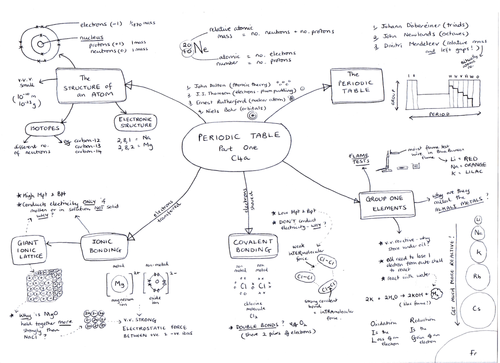 electrons (-1)
nucleus
protons (+1) 1 mass
neutrons (0) 1 mass
20
10 Ne
relative atomic
mass = no. neutrons + no. protons
atomic = no. electrons
number = no. protons
Johann Dobereiner (triads)
John Newlands (octaves)
Dmitri Mendeleev (relative mass
and left gaps!)
The
STRUCTURE of
an ATOM
v.v.v
small
ISOTOPES
different no.
of neutrons
carbon-12
carbon-13
carbon-14
ELECTRONIC
STRUCTURE
2,8,1 = Na
2,8,2 = Mg
John Dalton (Atomic theory)
J.J. Thomson (electrons - plum pudding)
Ernest Rutherford (nuclear atom)
Niels Bohr (orbitals)
The
PERIODIC
TABLE
GROUP
PERIOD
PERIODIC TABLE
Part One
C4a
FLAME
TESTS
Li = RED
Na = ORANGE
K = LILAC
electrons
transferred
electrons
shared
GROUP ONE
ELEMENTS
Why are they
called the
ALKALI METALS?
v.v. reactive - why
store under oil?
All need to lose 1
electron from outer shell
to react
react with water
2K + 2H₂O → 2KOH + H₂
Oxidation
Is the
Loss of e-
Reduction
Is the
Gain of
electron
Get more more reactive!
Li
Na
K
Rb
Cs
Fr
High Mpt + Bpt
Conducts electricity ONLY if
molten or in solution, NOT solid
WHY?
GIANT
IONIC
LATTICE
IONIC
BONDING
metal
non-metal
Mg
2+
O
2-
magnesium
ion
oxide
ion
Why is MgO
held together more
strongly than
NaCl?
v.v. STRONG
ELECTROSTATIC FORCE
BETWEEN +ve & -ve ions
Low Mpt + Bpt
DON'T conduct
electricity - WHY?
COVALENT
BONDING
weak
INTERmolecular
force
non-
metal
non-
metal
Cl Cl
chlorine
molecule
Cl₂
Cl-Cl
Cl-Cl
Cl-Cl
strong covalent
bond
INTRAmolecular
force
DOUBLE BONDS? eg O₂
(share 2 pairs of electrons)